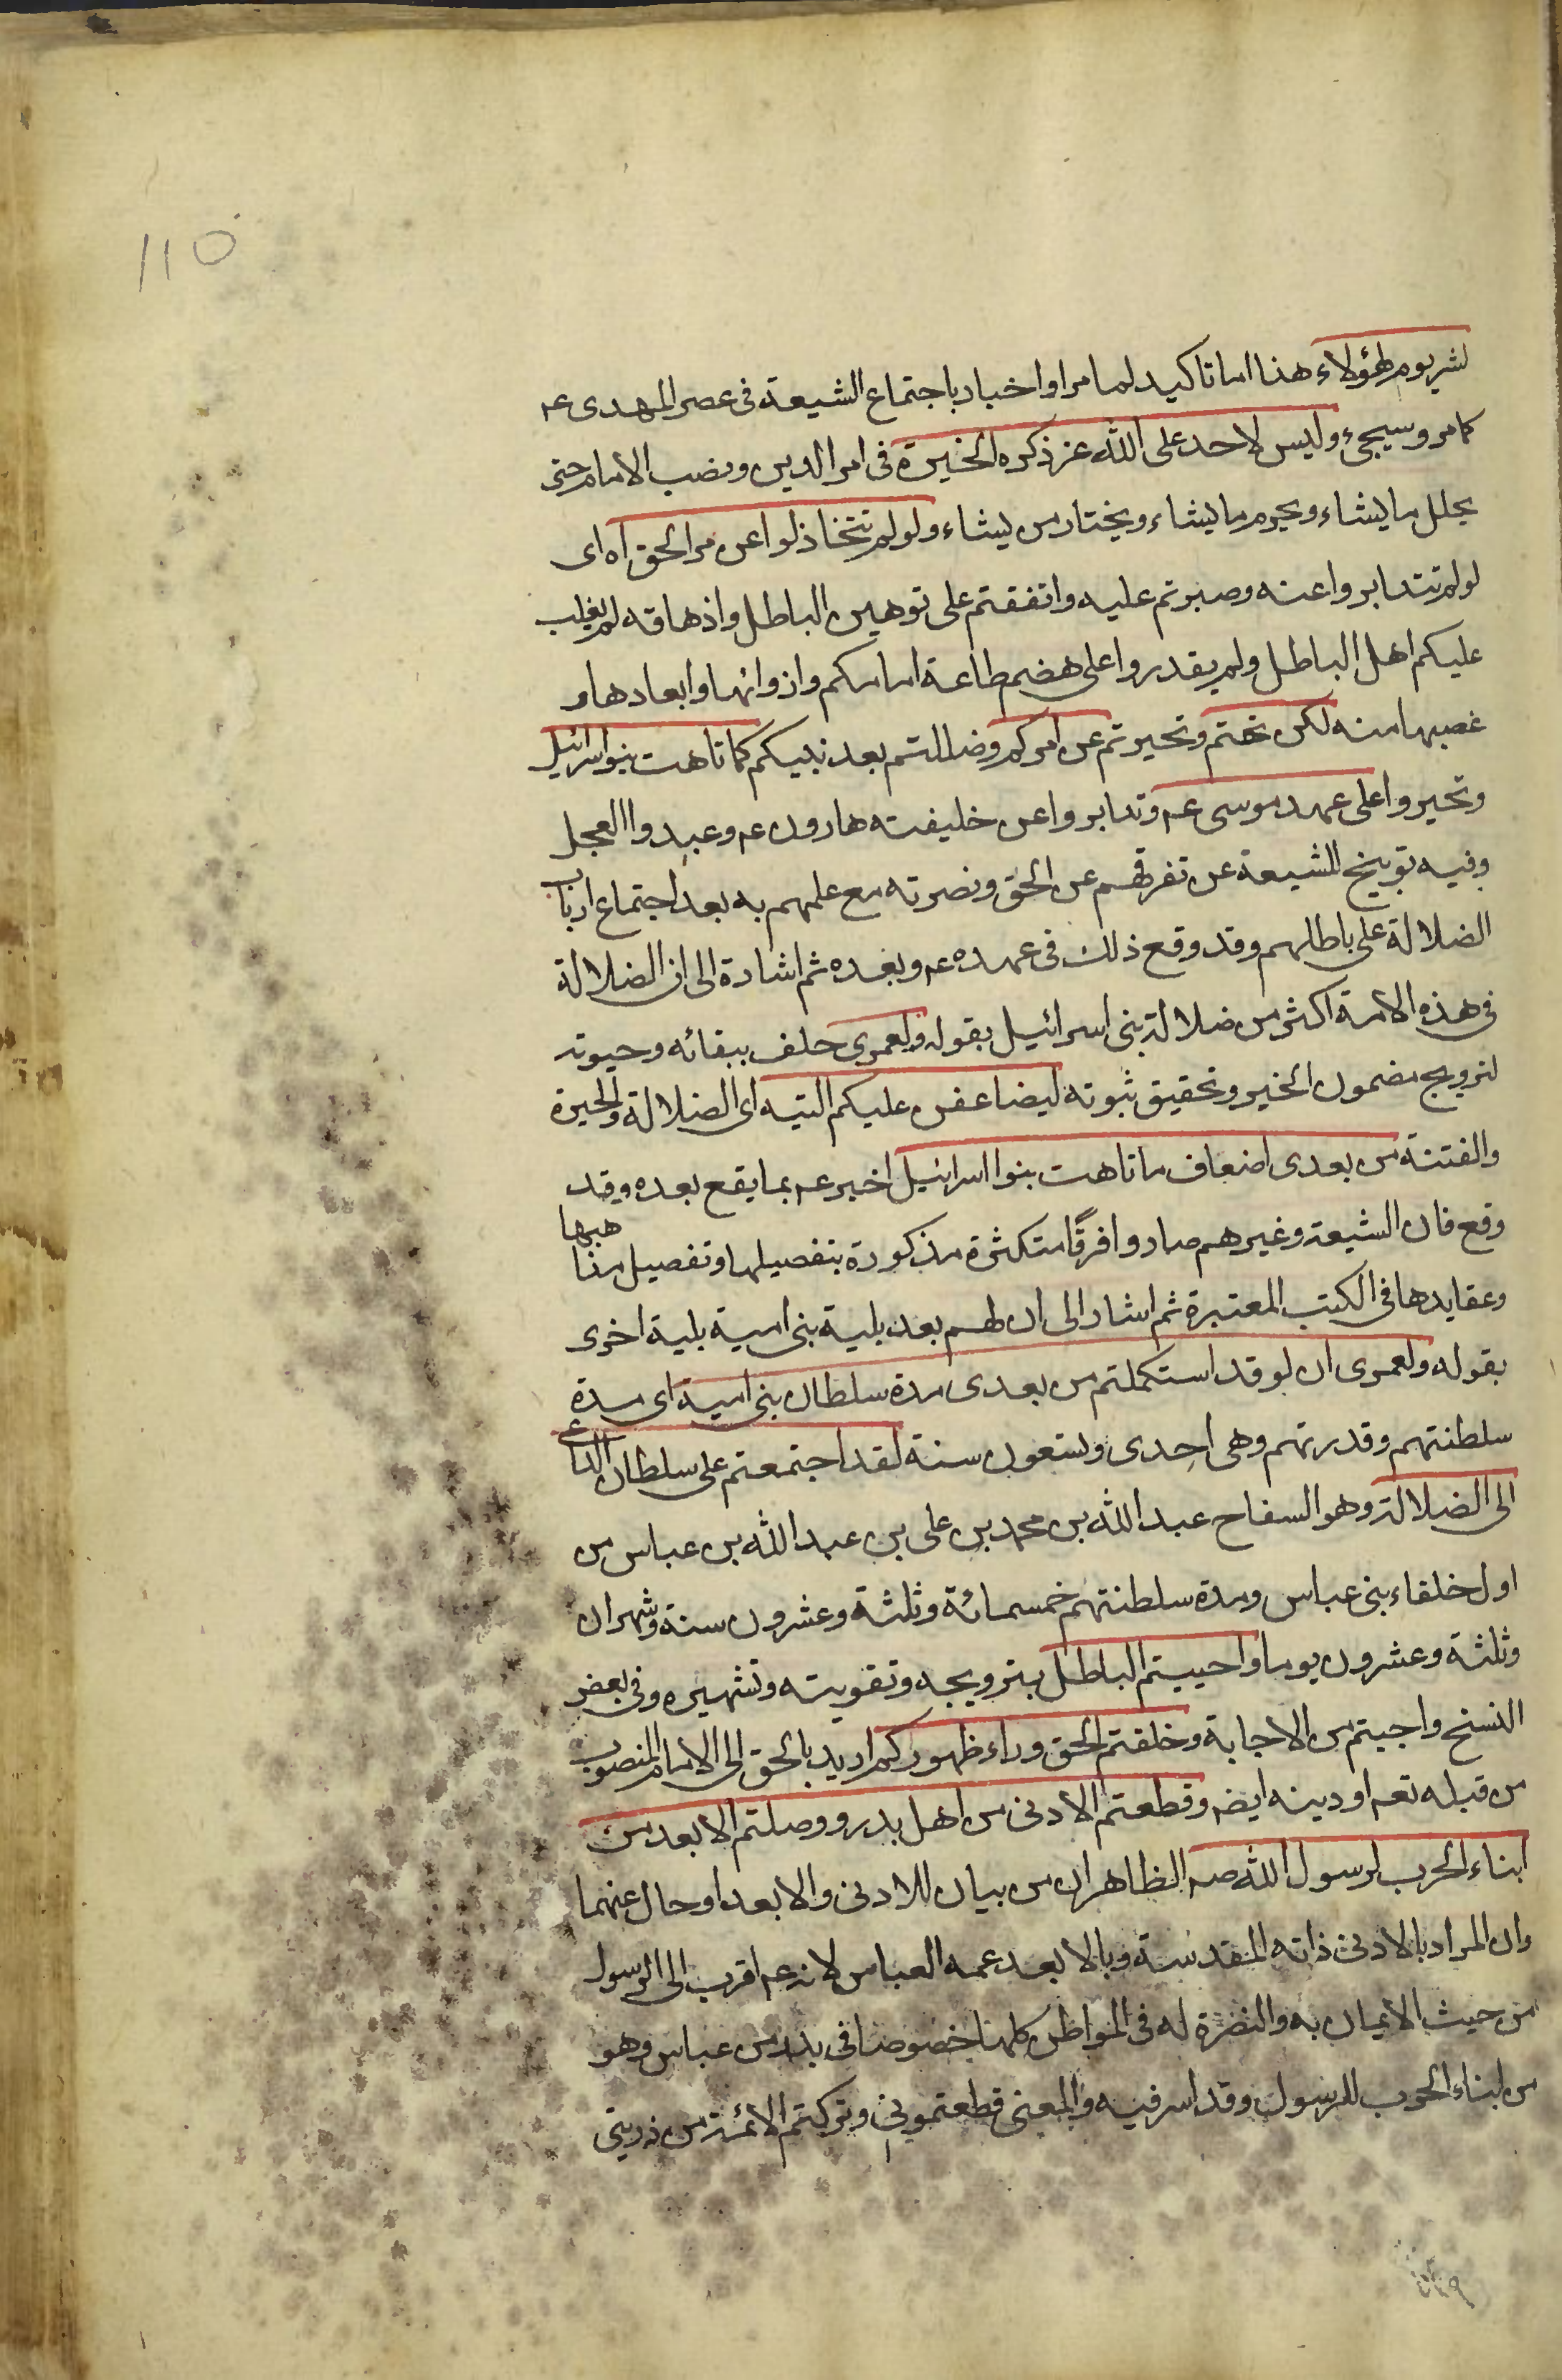 110
لشر يوم لهؤلاء هذا اما تاكيد لما مر او اخبار باجتماع الشيعة فى عصر المهدى عم
كما مر وسيجىء وليس لاحد على الله عز ذكره الخيرة فى امر الدين ونصب الامام حتى
يحلل ما يشاء ويحرم ما يشاء ويختار من يشاء ولو لم تتخاذلوا عن مر الحق اه اى
لو لم تتدابروا عنه وصبرتم عليه واتفقتم على توهين الباطل واذهاقه لم يغلب
عليكم اهل الباطل ولم يقدروا على هضم طاعة امامكم وازوائها وابعادها و
غصبها منه لكن تهتم وتحيرتم عن امركم وضللتم بعد نبيكم كما تاهت بنو اسرائيل
وتحيروا على عهد موسى عم وتدابروا عن خليفته هارون عم وعبدوا العجل
وفيه توبيخ للشيعة عن تفرقهم عن الحق ونصرته مع علمهم به بعد اجتماع ارباب
الضلالة على باطلهم وقد وقع ذلك فى عهده عم وبعده ثم اشارة الى ان الضلالة
فى هذه الامة اكثر من ضلالة بنى اسرائيل بقوله ولعمرى حلف ببقائه وحيوته
لترويج مضمون الخبر وتحقيق ثبوته ليضاعفن عليكم التيه اى الضلالة والحيرة
والفتنة من بعدى اضعاف ما تاهت بنوا اسرائيل اخبر عم بما يقع بعده وقد
وقع فان الشيعة وغيرهم صاروا فرقًا متكثرة مذكورة بتفصيلها وتفصيل مذاهبها
وعقايدها فى الكتب المعتبرة ثم اشار الى ان لهم بعد بلية بنى امية بلية اخرى
بقوله ولعمرى ان لو قد استكملتم من بعدى مدة سلطان بنى امية اى مدة
سلطنتهم وقدرتهم وهى احدى وتسعون سنة لقد اجتمعتم على سلطان الداعى
الى الضلالة وهو السفاح عبد الله بن محمد بن على بن عبد الله بن عباس من
اول خلفاء بنى عباس ومدة سلطنتهم خمسمائة وثلثة وعشرون سنة وشهران
وثلثة وعشرون يوما واحييتم الباطل بترويجه وتقويته وتشهيره وفى بعض
النسخ واجبتم من الاجابة وخلفتم الحق وراء ظهوركم اريد بالحق الى الامام المنصوب
من قبله تعم او دينه ايضه وقطعتم الادنى من اهل بدر ووصلتم الابعد من
ابناء الحرب لرسول الله صم الظاهر ان من بيان للادنى والابعد او حال عنهما
وان المراد بالادنى ذاته المقدسة وبالابعد عمه العباس لانه عم اقرب الى الرسول
من حيث الايمان به والنصرة له فى المواطن كلها خصوصا فى بدر من عباس وهو
من ابناء الحرب للرسول وقد اسر فيه والمعنى قطعتمونى وتركتم الائمة من ذريتى